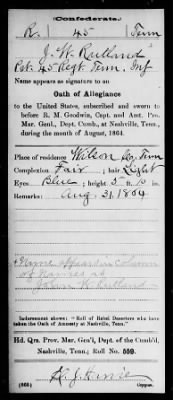 Confederate.
R. 45 Tenn
J. W. Rutland
Pvt. 45 Regt. Tenn. Inf
Name appears as signature to an
Oath of Allegiance
to the United States, subscribed and sworn to
before R. M. Goodwin, Capt. and Asst. Pro.
Mar. Genl., Dept. Cumb., at Nashville, Tenn.,
during the month of August, 1864.
Place of residence Wilson Co. Tenn
Complexion Fair; hair Light
Eyes Blue; height 5 ft. 10 in.
Remarks: Aug. 31, 1864
Name appears in column
of names as
John W. Rutland
Indorsement shows: "Roll of Rebel Deserters who have
taken the Oath of Amnesty at Nashville, Tenn."
Hd. Qrs. Prov. Mar. Gen'l, Dept. of the Cumb'd,
Nashville, Tenn.; Roll No. 559.
Copyist.